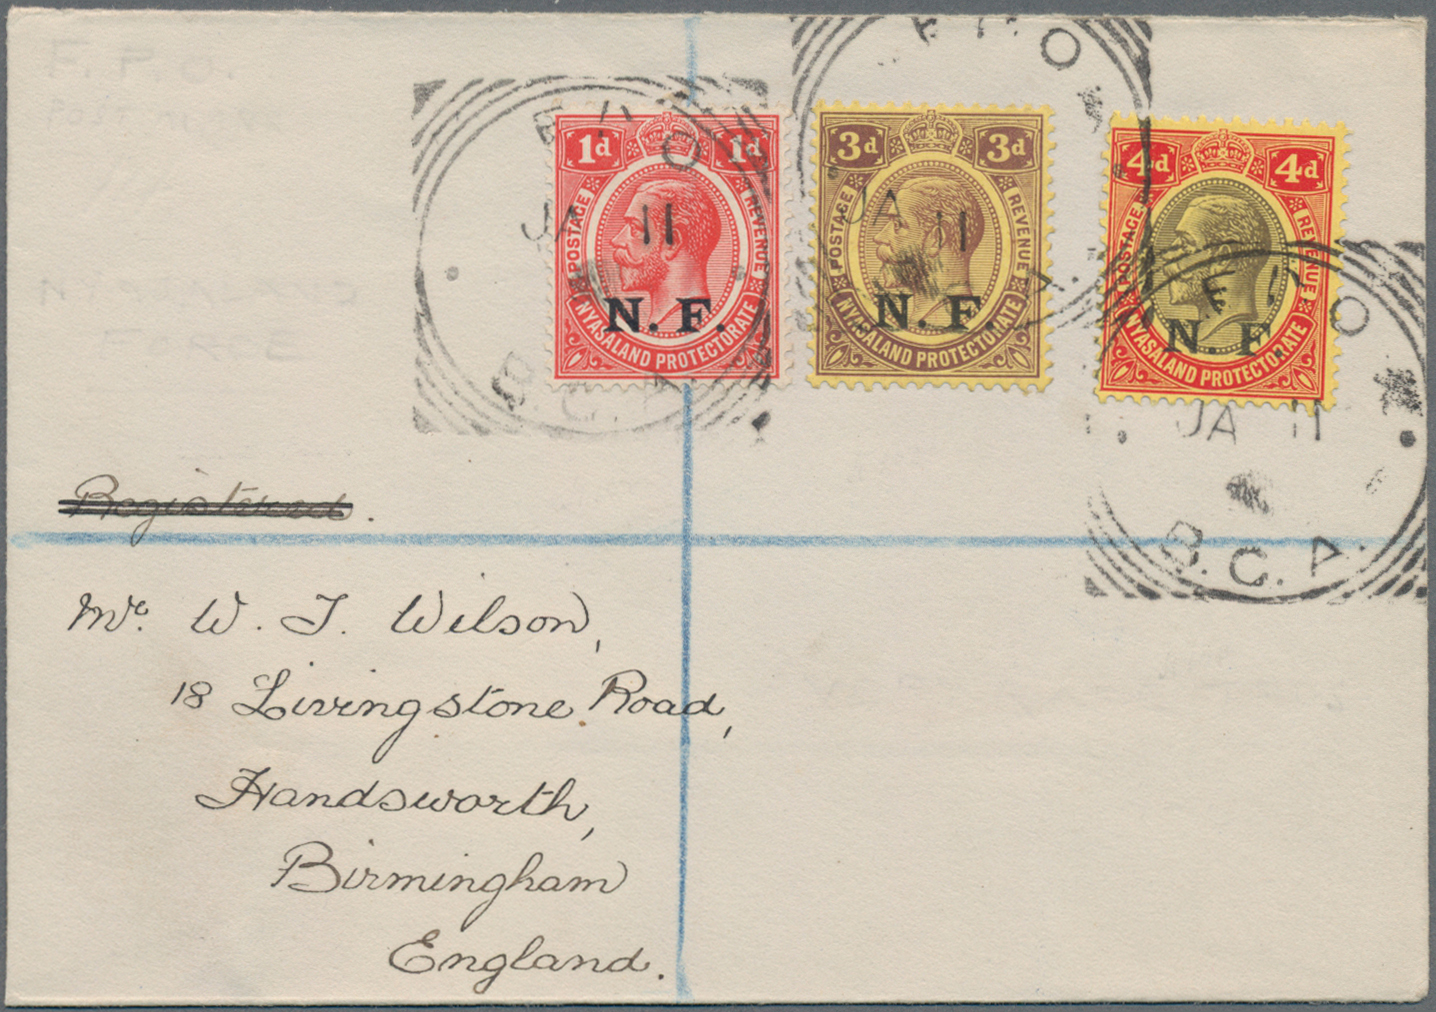 F. P. O.
NYASALAND
FORCE
F.P.O
JA 11
B.C.A.
F.P.O
JA 11
F.P.O
JA 11
B.C.A.
1d 1d
POSTAGE REVENUE
N. F.
NYASALAND PROTECTORATE
3d 3d
POSTAGE REVENUE
N. F.
NYASALAND PROTECTORATE
4d 4d
POSTAGE REVENUE
N. F.
NYASALAND PROTECTORATE
Registered.
Mr. W. T. Wilson,
18 Livingstone Road,
Handsworth,
Birmingham
England.